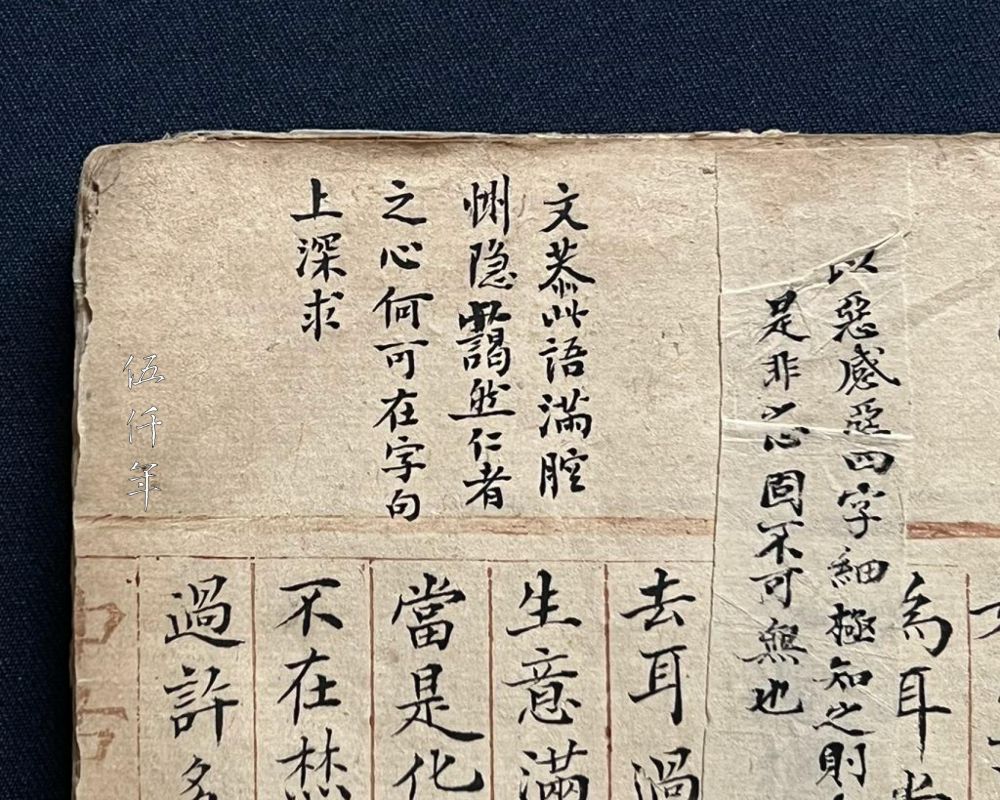 以惡感惡四字細極知之則
是非之心固不可無也
文恭此語滿腔
惻隐靄然仁者
之心何可在字句
上深求
為耳
去耳過
生意滿
當是化
不在
過許多
伍仟年